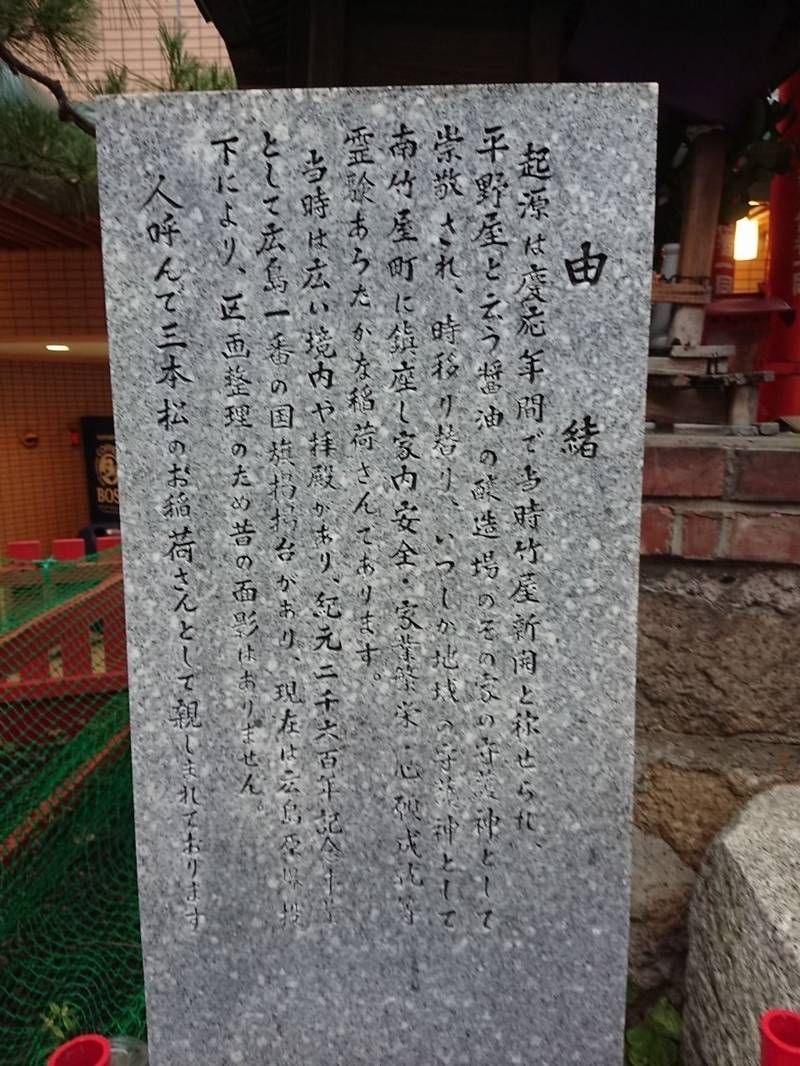 由緒
起源は慶応年間で当時竹屋新開と称せられ、
平野屋と云う醤油の醸造場のその家の守護神として
崇敬され、時移り替り、いつしか地域の守護神として
南竹屋町に鎮座し家内安全・家業繁栄・心願成就等
霊験あらたかな稲荷さんであります。
当時は広い境内や拝殿があり、紀元二千六百年記念事業
として広島一番の国旗掲揚台があり、現在は広島原爆投
下により、区画整理のため昔の面影はありません。
人呼んで三本松のお稲荷さんとして親しまれております
BOS